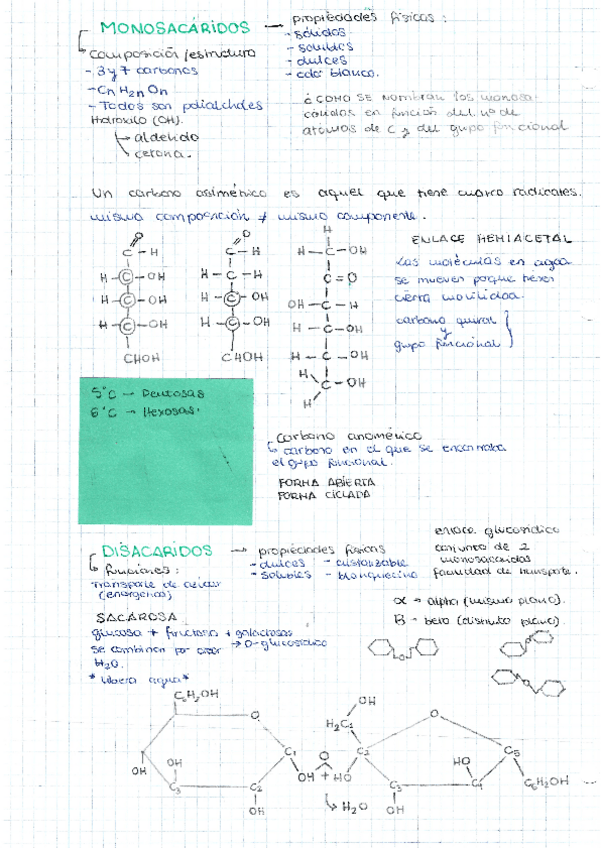 MONOSACÁRIDOS → propiedades físicas:
- sólidos
- solubles
- dulces
- color blanco.
Composición/estructura
- 3 y 7 carbonos
- Cn H2n On
- Todos son polialcholes
Hidroxilo (OH).
→ aldehído
→ cetona.
¿CÓMO SE nombran los monosa-
cáridos en función del nº de
átomos de C y del grupo funcional
Un carbono asimétrico es aquel que tiene cuatro radicales.
misma composición ≠ mismo componente.
O
C - H
H - C - OH
H - C - OH
H - C - OH
CHOH
O
C - H
H - C - H
H - C - OH
H - C - OH
CHOH
H
H - C - OH
C = O
OH - C - H
H - C - OH
H - C - OH
H
C - OH
H
ENLACE HEMIACETAL
Las moléculas en agua
se mueven porque tienen
cierta movilidad.
carbono quiral
y
grupo funcional
5°C → Pentosas
6°C → Hexosas.
carbono anomérico
↳ carbono en el que se encontraba
el grupo funcional.
FORMA ABIERTA
FORMA CICLADA
DISACÁRIDOS → propiedades físicas
- dulces - cristalizable
- solubles - blanquecino
↳ funciones:
Transporte de azúcar
(energéticos)
enlace glucosídico
conjunto de 2
monosacáridos
facilidad de transporte.
α → alpha (mismo plano).
B - beta (distinto plano).
SACAROSA
glucosa + fructosa + galactosas
→ O-glucosídico
se combinan por
H2O.
*libera agua*
O
C6H2OH
O
C1
OH
C2
OH
C3
OH
OH
O
OH + HO
↳ H2O
OH
H2C1
C2
O
C3
OH
C4
HO
C5
C6H2OH